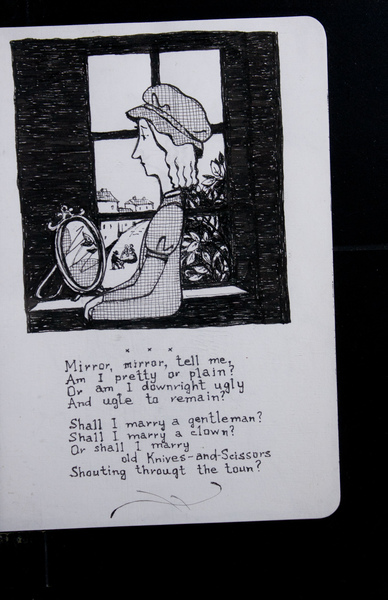 x x x
Mirror, mirror, tell me,
Am I pretty or plain?
Or am I downright ugly
And ugle to remain?
Shall I marry a gentleman?
Shall I marry a clown?
Or shall I marry
old Knives-and-Scissors
Shouting througt the toun?